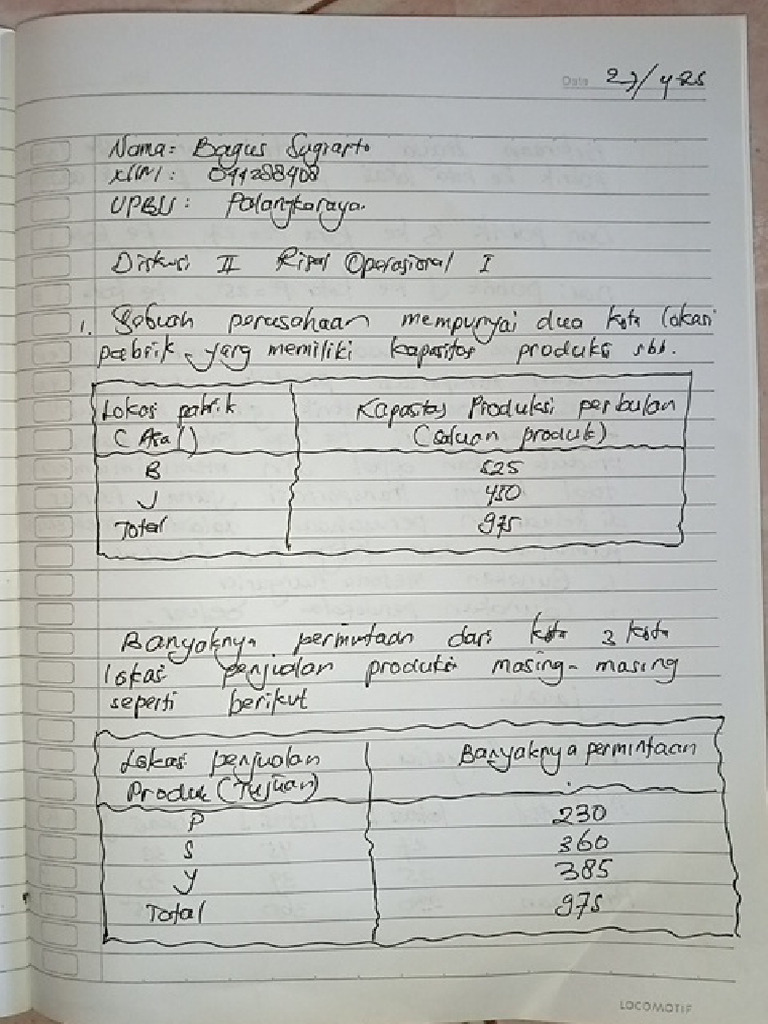 Date 27/4-25
Nama = Bagus Sugiarto
NIM : 044288408
UPBJJ : Palangkaraya.
Diskusi II Riset Operasional I
1. Sebuah perusahaan mempunyai dua kota lokasi
pabrik, yang memiliki kapasitas produksi sbb.
Lokasi pabrik Kapasitas Produksi perbulan
(Asal) (Satuan produk)
B 525
J 450
Total 975
Banyaknya permintaan dari kota 3 kota
lokasi penjualan produksi masing-masing
seperti berikut
Lokasi penjualan Banyaknya permintaan
Produk (Tujuan)
P 230
S 360
Y 385
Total 975
LOCOMOTIF